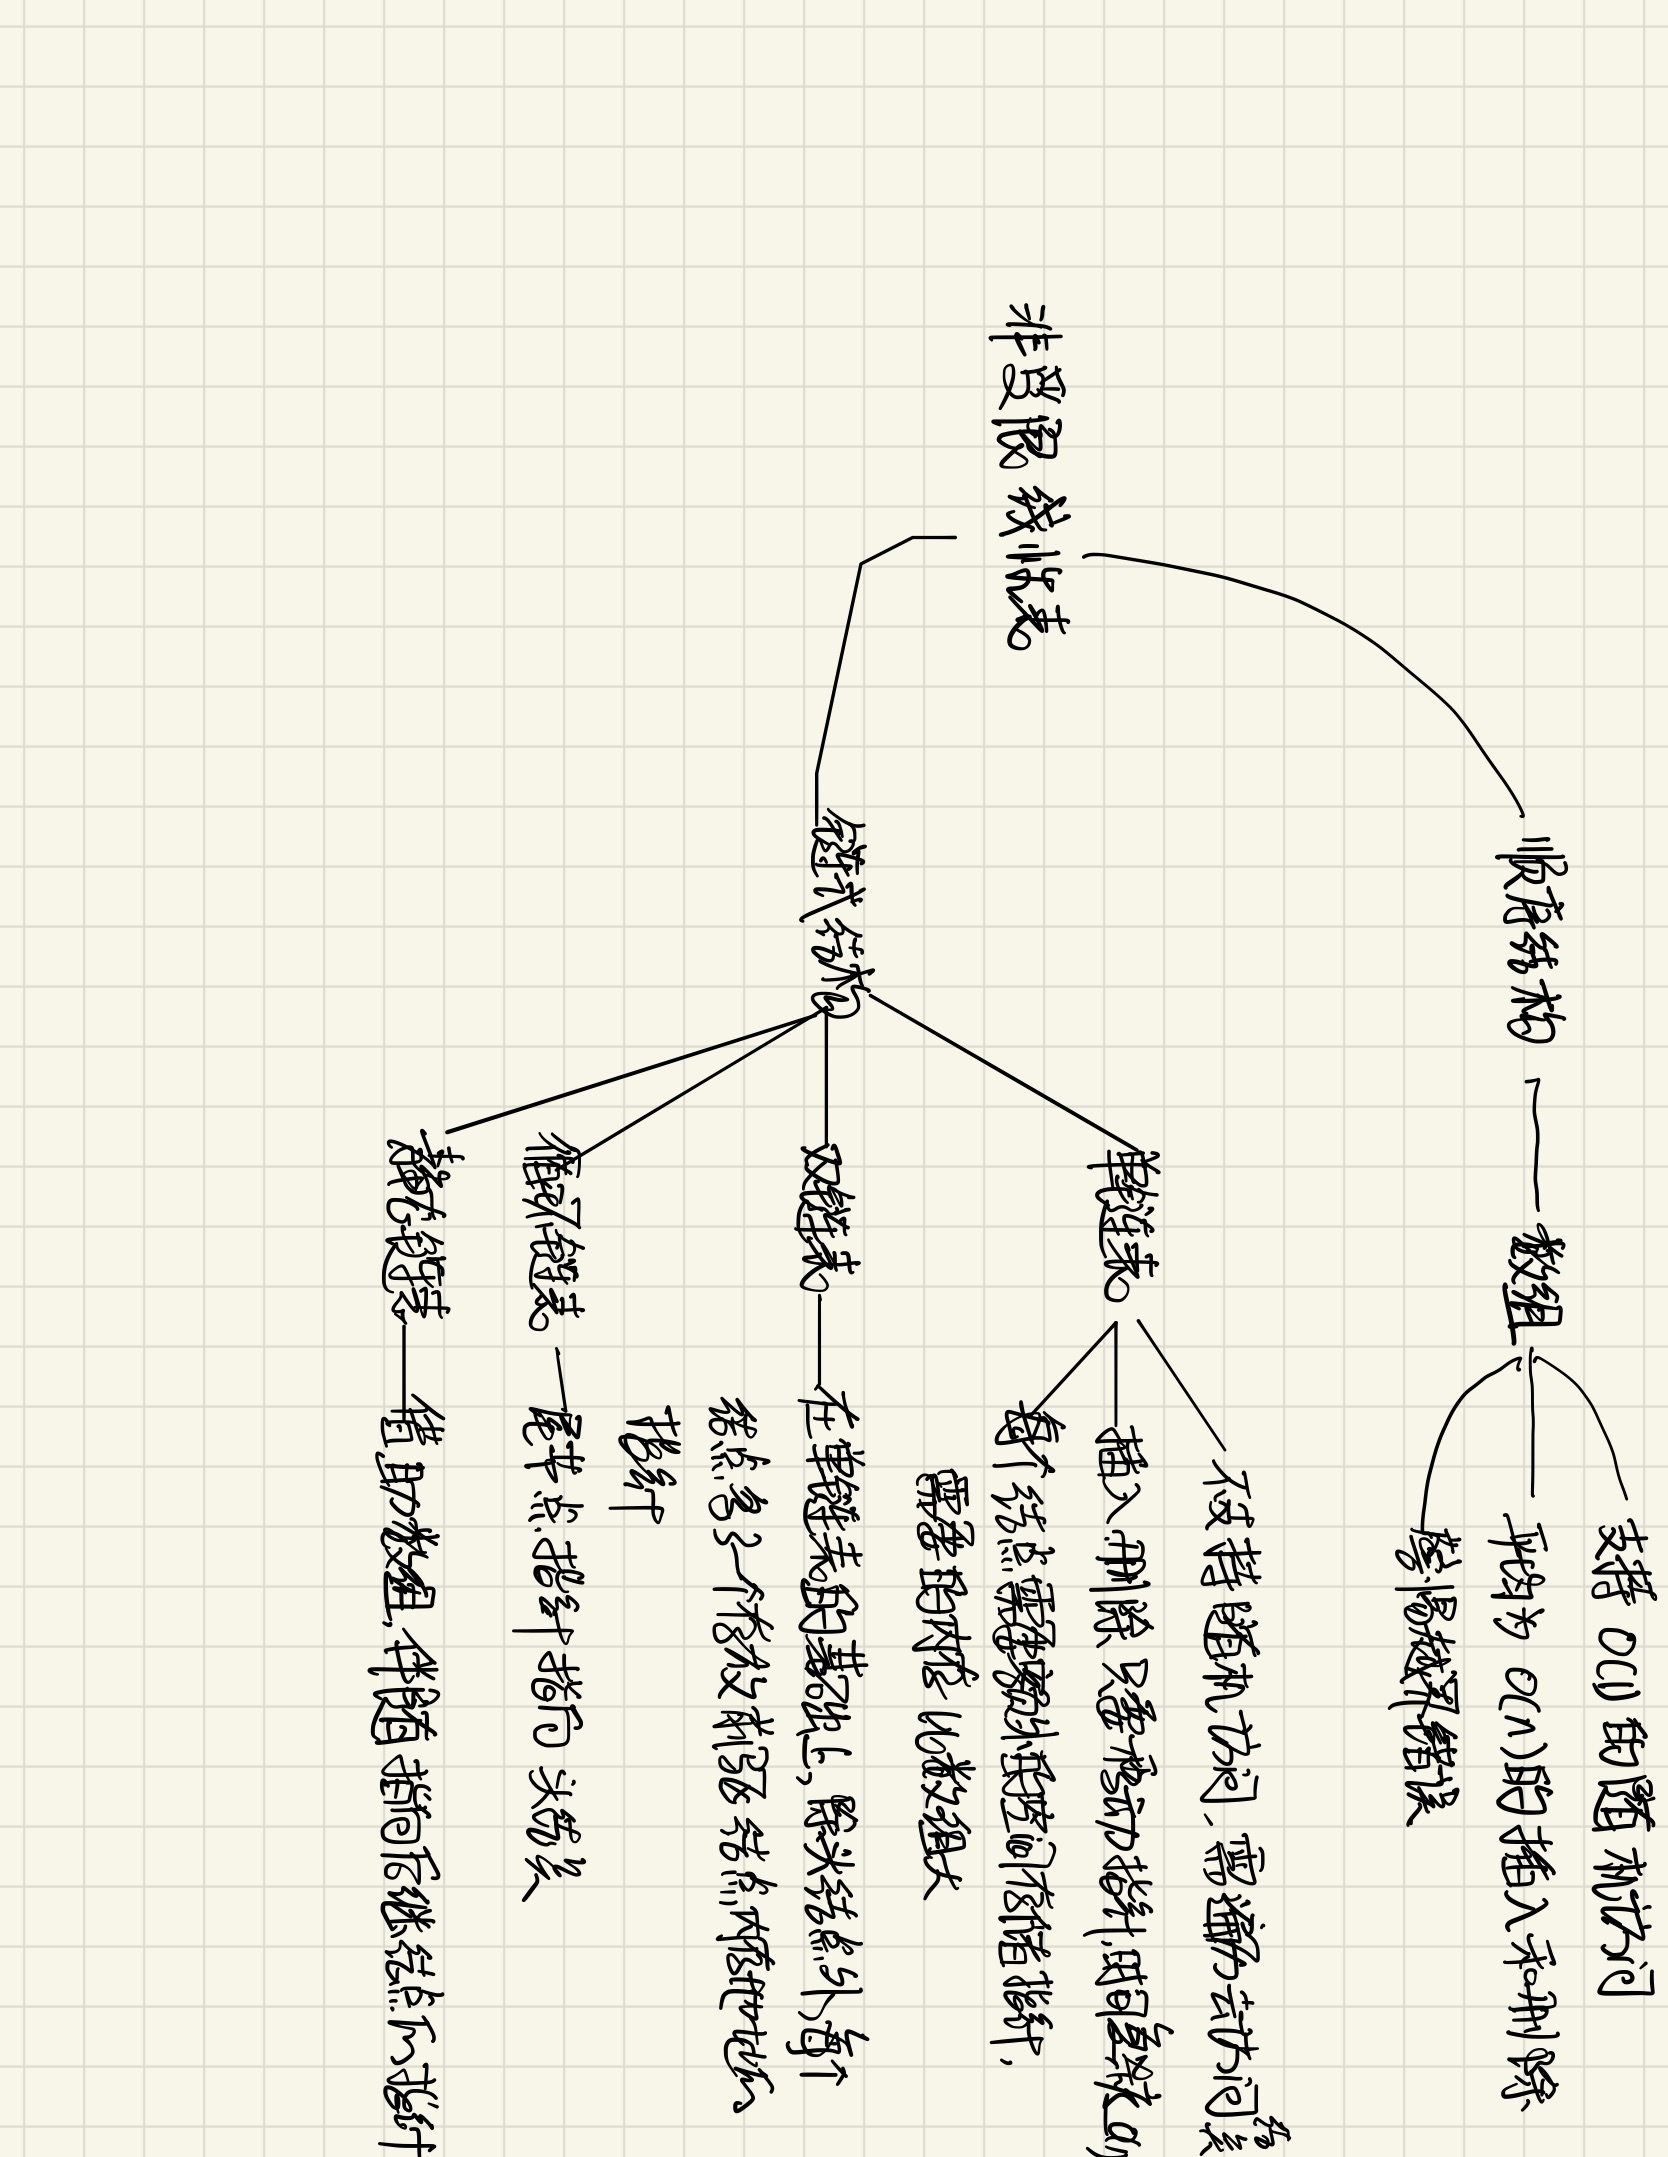 非受限线性表
顺序结构
数组
支持O(1)的随机访问
平均为O(n)的插入和删除
容易越界错误
链式结构
单链表
不支持随机访问、需遍历去访问结点
插入、删除只需要移动指针,时间复杂度O(1)
每个结点需要额外的空间存储指针,
需要的内存比数组大
双链表
在单链表的基础上,除头结点外,每个
结点多了一个存放前驱结点内存地址的
指针
循环链表
尾节点指针指向头结点
静态链表
借助数组,伴随指向后继结点的指针